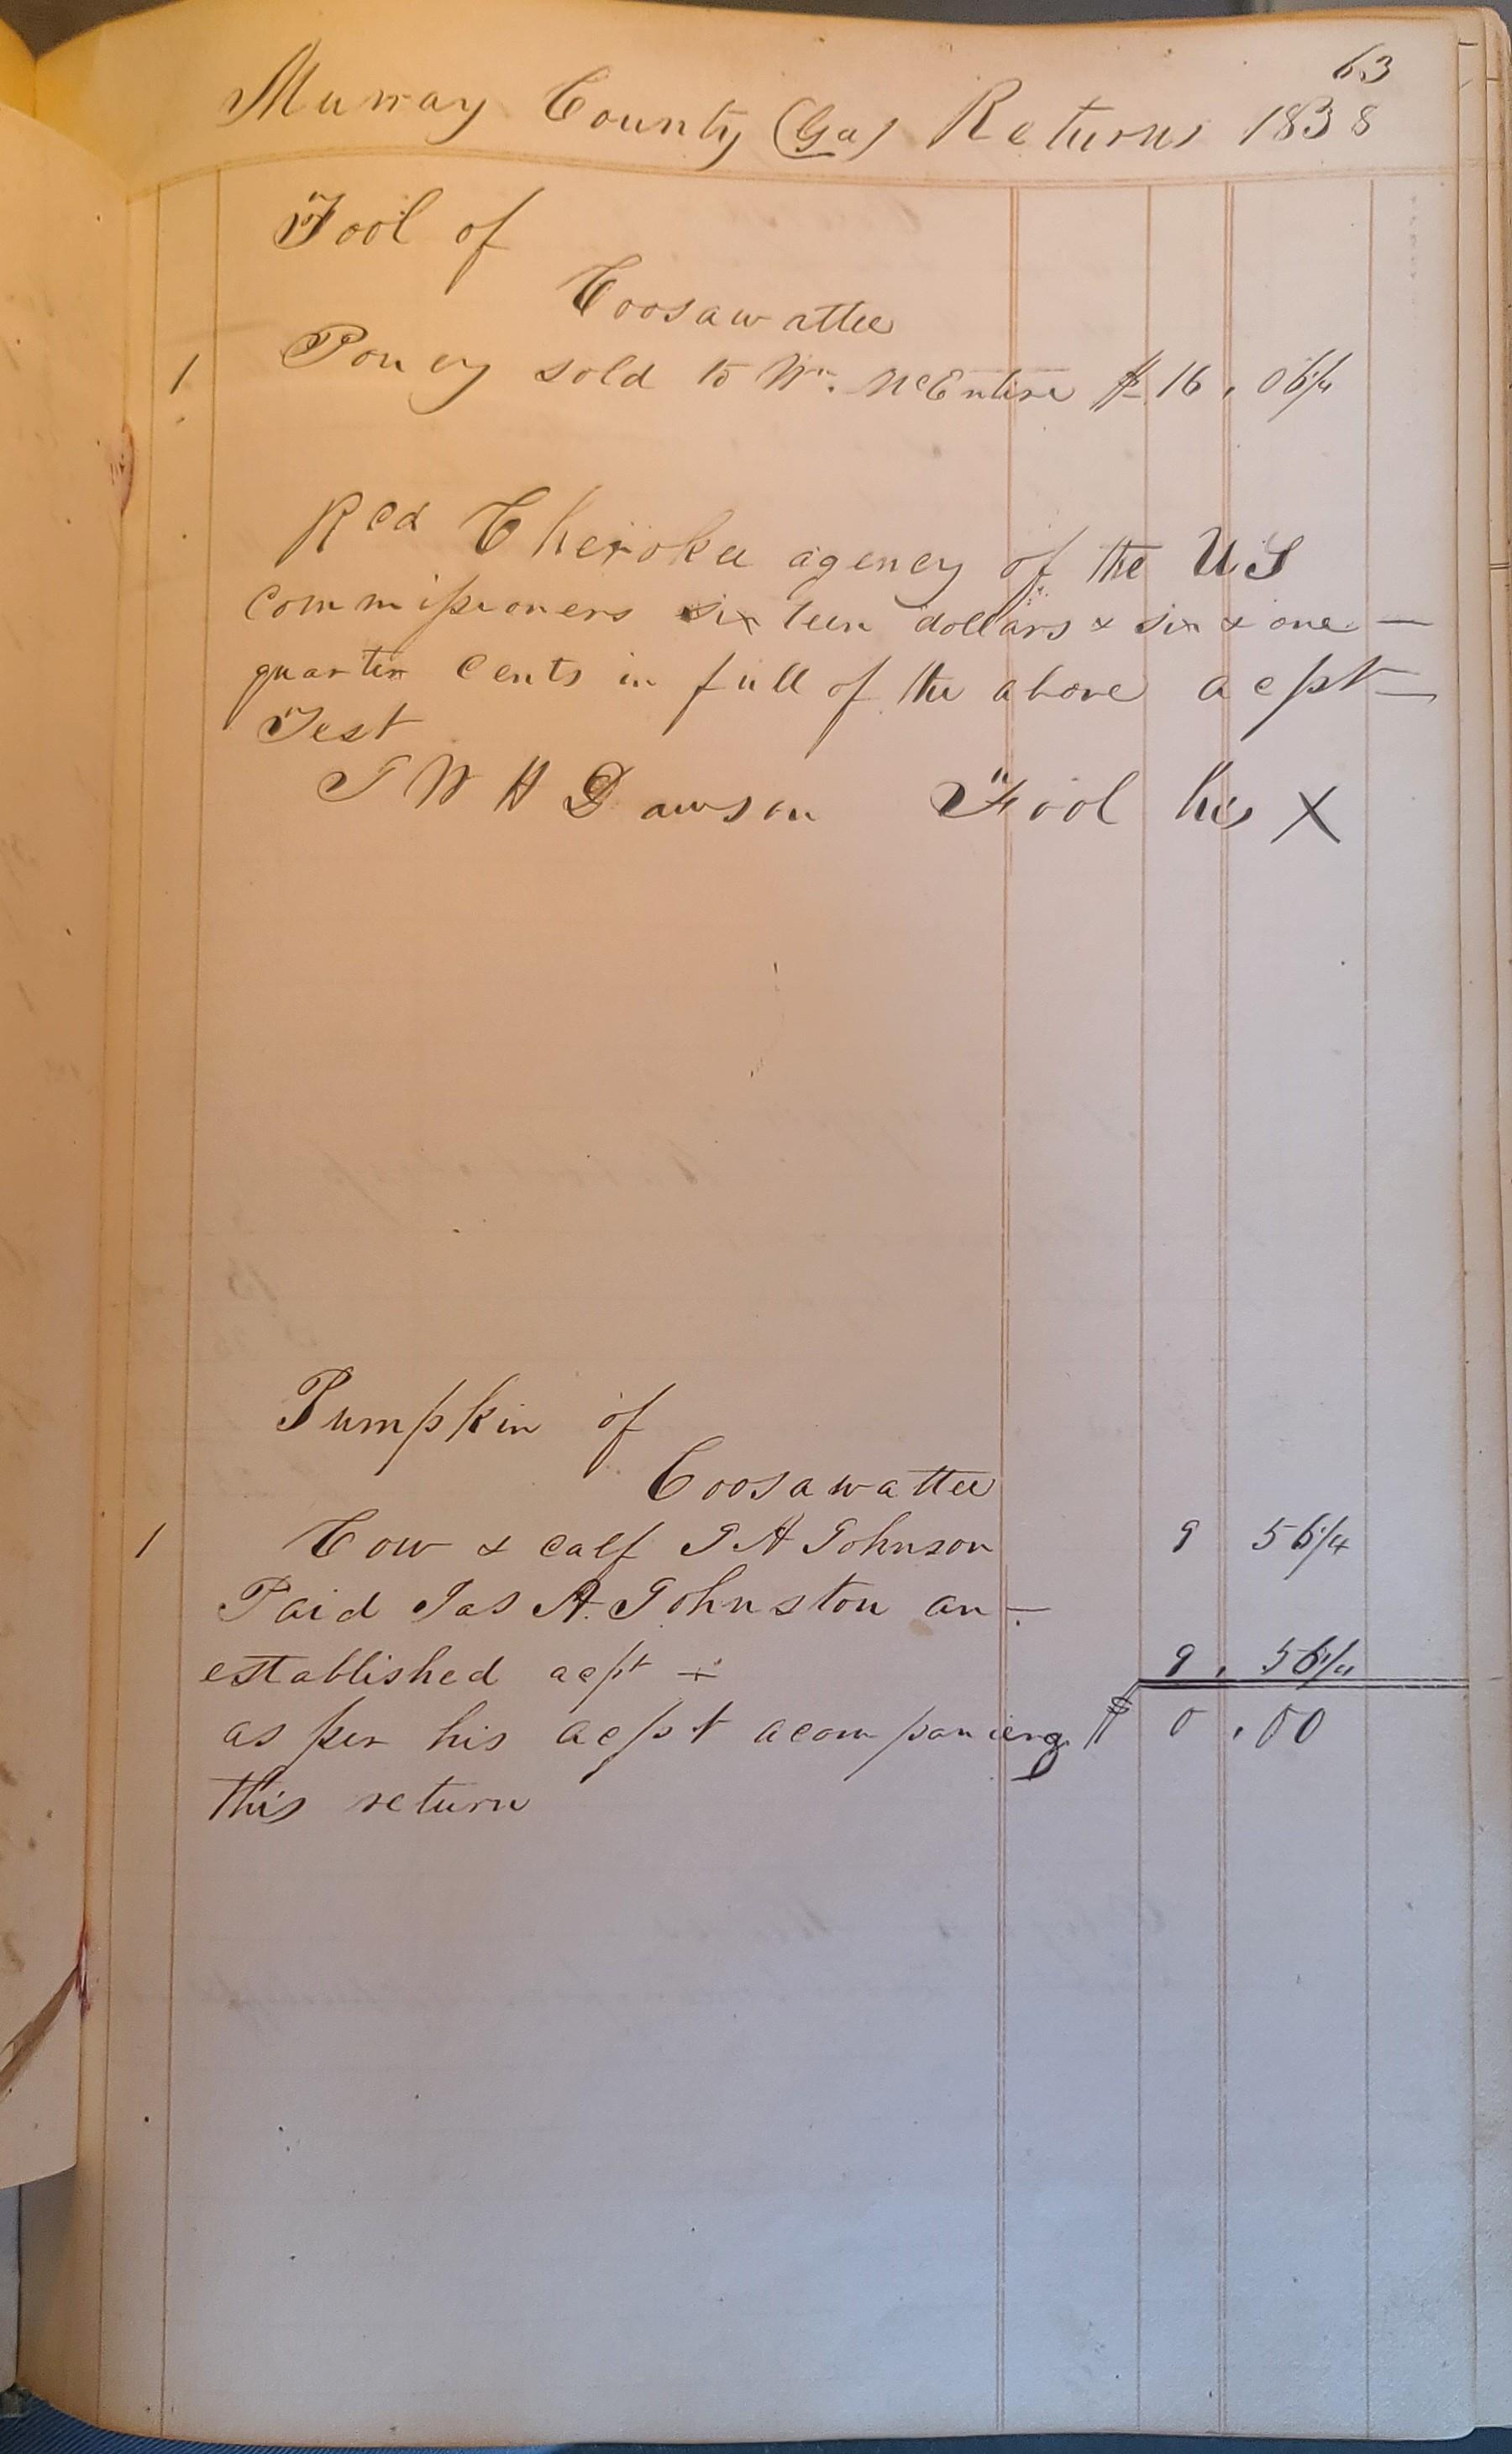 63
Murray County (Ga) Returns 1838
Fool of
Coosawattee
1 Poney sold to Wm. McEntire $ 16 . 06 1/4
Recd Cherokee agency of the U.S
commissioners sixteen dollars & six & one —
quarter Cents in full of the above acpt —
Test
J W H Dawson Fool his X
Pumpkin of
Coosawattee
1 Cow & calf J A Johnson 9 56 1/4
Paid Jas A. Johnston an —
established acpt 9 . 56 1/4
as per his acpt acompanieng $ 0 . 00
this return